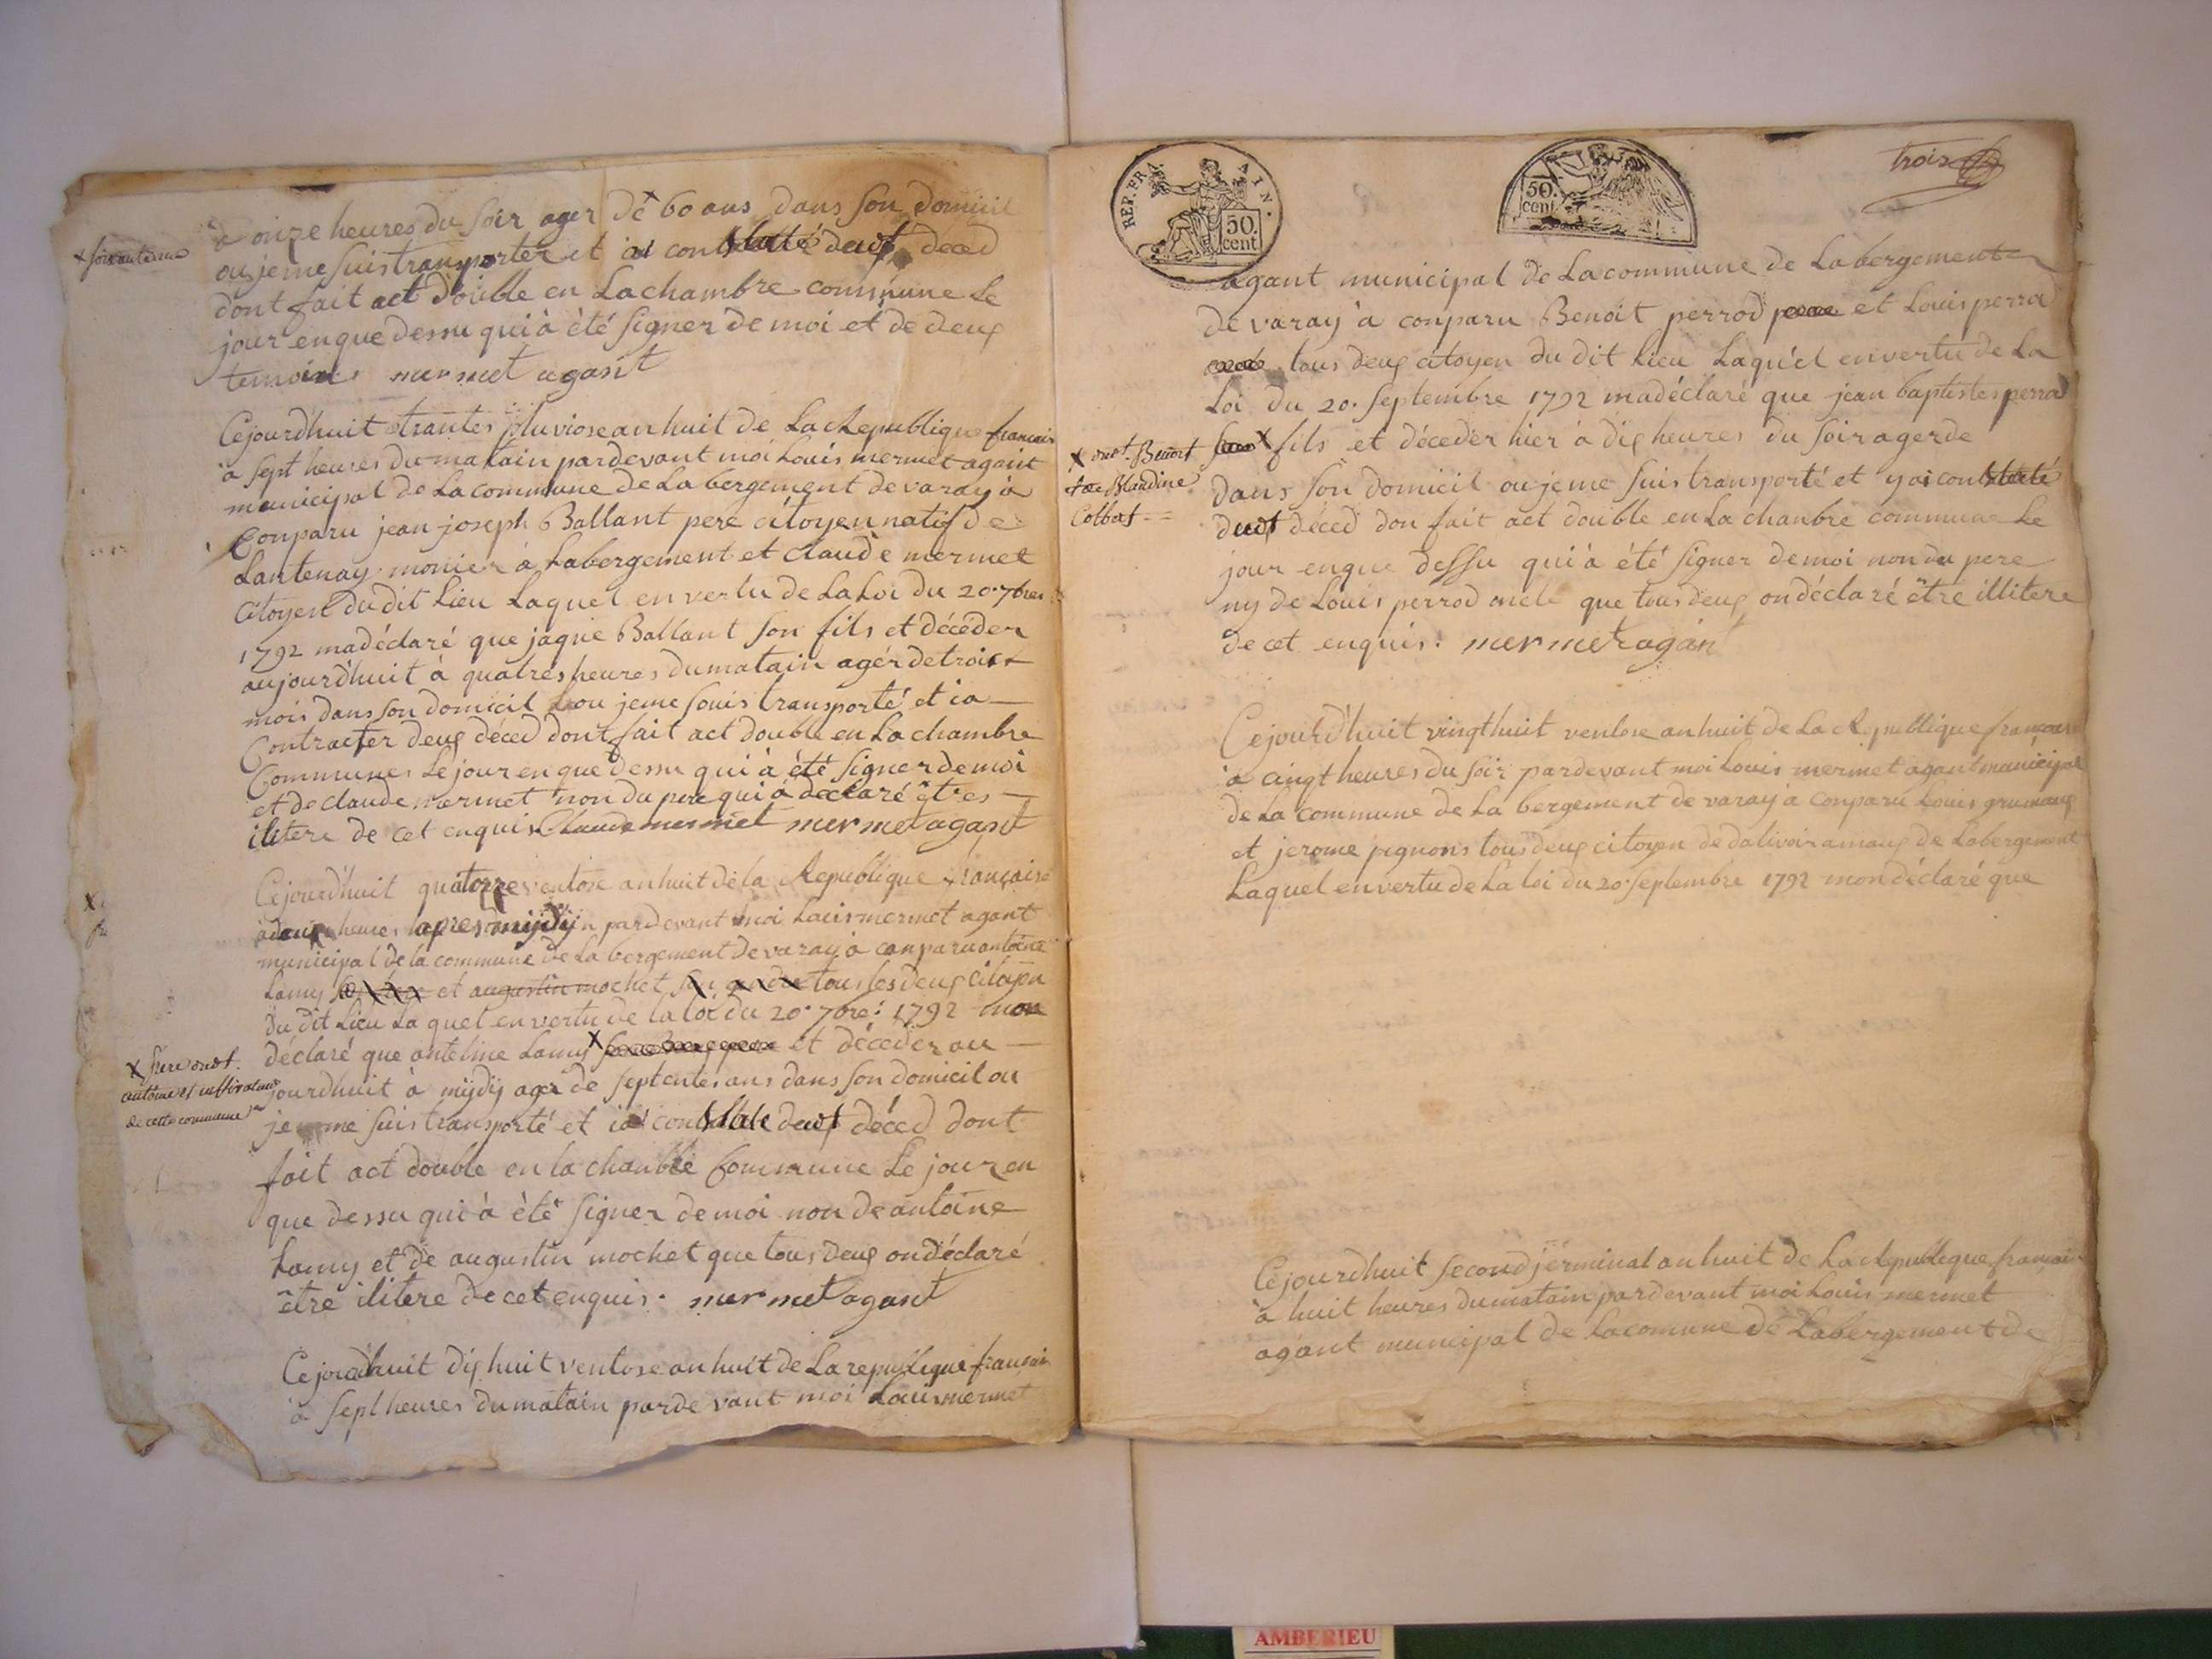 à onze heures du soir ager de + 60 ans dans son domicil
+ soixante
ou je me suis transporter et ai constaté deuf déced
dont fait act double en La chambre commune Le
jour enque dessu qui à été signer de moi et de deux
temoins mermet agant
Cejourdhuit trantes pluviose an huit de La Republique francais
à sept heures du matain pardevant moi Louis mermet agant
municipal de La commune de Labergement de varay à
Conparu jean joseph Ballant pere citoyen natif de
Lantenay monier à Labergement et claude mermet
Citoyen du dit Lieu Laquel en vertu de La Loi du 20. 7bres
1792 madéclaré que jaque Ballant son fils et décéder
aujourdhuit à quatres heures du matain agér de trois
mois dans son domicil ou je me souis transporté et ia
Contracter deux déced dont fait act double en La chambre
Communes Le jour en que dessu qui à été signer de moi
et de claude mermet non du pere qui à déclaré êtres
ilitere de cet enquis Claude mermet mermet agant
Cejourdhuit quatorze ventose an huit de la Republique française
à deux heures apres mijdij pardevant moi Louis mermet agant
municipal de la commune de La bergement de varay à conparu antoine
Lamy et augustin mochet tous les deux citoyen
du dit Lieu La quel en vertu de la loi du 20. 7bre: 1792 mon
déclaré que antelme Lamy X et décéder au
X frere dudt.
antoine et cultivateur
de cette commune
jourdhuit à mijdij ager de septentes ans dans son domicil ou
je me suis transporté et iai constaté deuf déced dont
fait act double en la chanbre Commune Le jour en
que dessu qui à été signer de moi non de antoine
Lamy et de augustin mochet que tous deux on déclaré
être ilitere de cet enquis. mermet agant
Cejourdhuit dix huit ventose an huit de La republique francais
à sept heures du matain pardevant moi Louis mermet
REP. FRA AIN.
50. cent
50. cent.
trois
agant municipal de La commune de Labergement
de varay à conparu Benoit perrod et Louis perrod
tous deux citoyen du dit lieu Laquel en vertu de La
Loi du 20. septembre 1792 madéclaré que jean baptistes perrod
X fils et décéder hier à dix heures du soir ager de
X dudt. Benoit
et de Blandine
Colbat
dans son domicil ou je me suis transporté et y ai constaté
deuf déced don fait act double en La chanbre commune Le
jour enque dessu qui à été signer de moi non du pere
ny de Louis perrod oncle que tous deux on déclaré être illitere
de cet enquis: mermet agant
Cejourdhuit vingt huit ventose an huit de La Republique française
à cinqt heures du soir pardevant moi Louis mermet agant municipal
de La commune de La bergement de varay à conparu Louis grumaux
et jerome pignons tous deux citoyen de dalivoir amaux de Labergement
Laquel en vertu de La loi du 20. septembre 1792 mon déclaré que
Cejourdhuit second jerminal an huit de La Republique français
à huit heures du matain pardevant moi Louis mermet
agant municipal de La comune de Labergement de
AMBERIEU